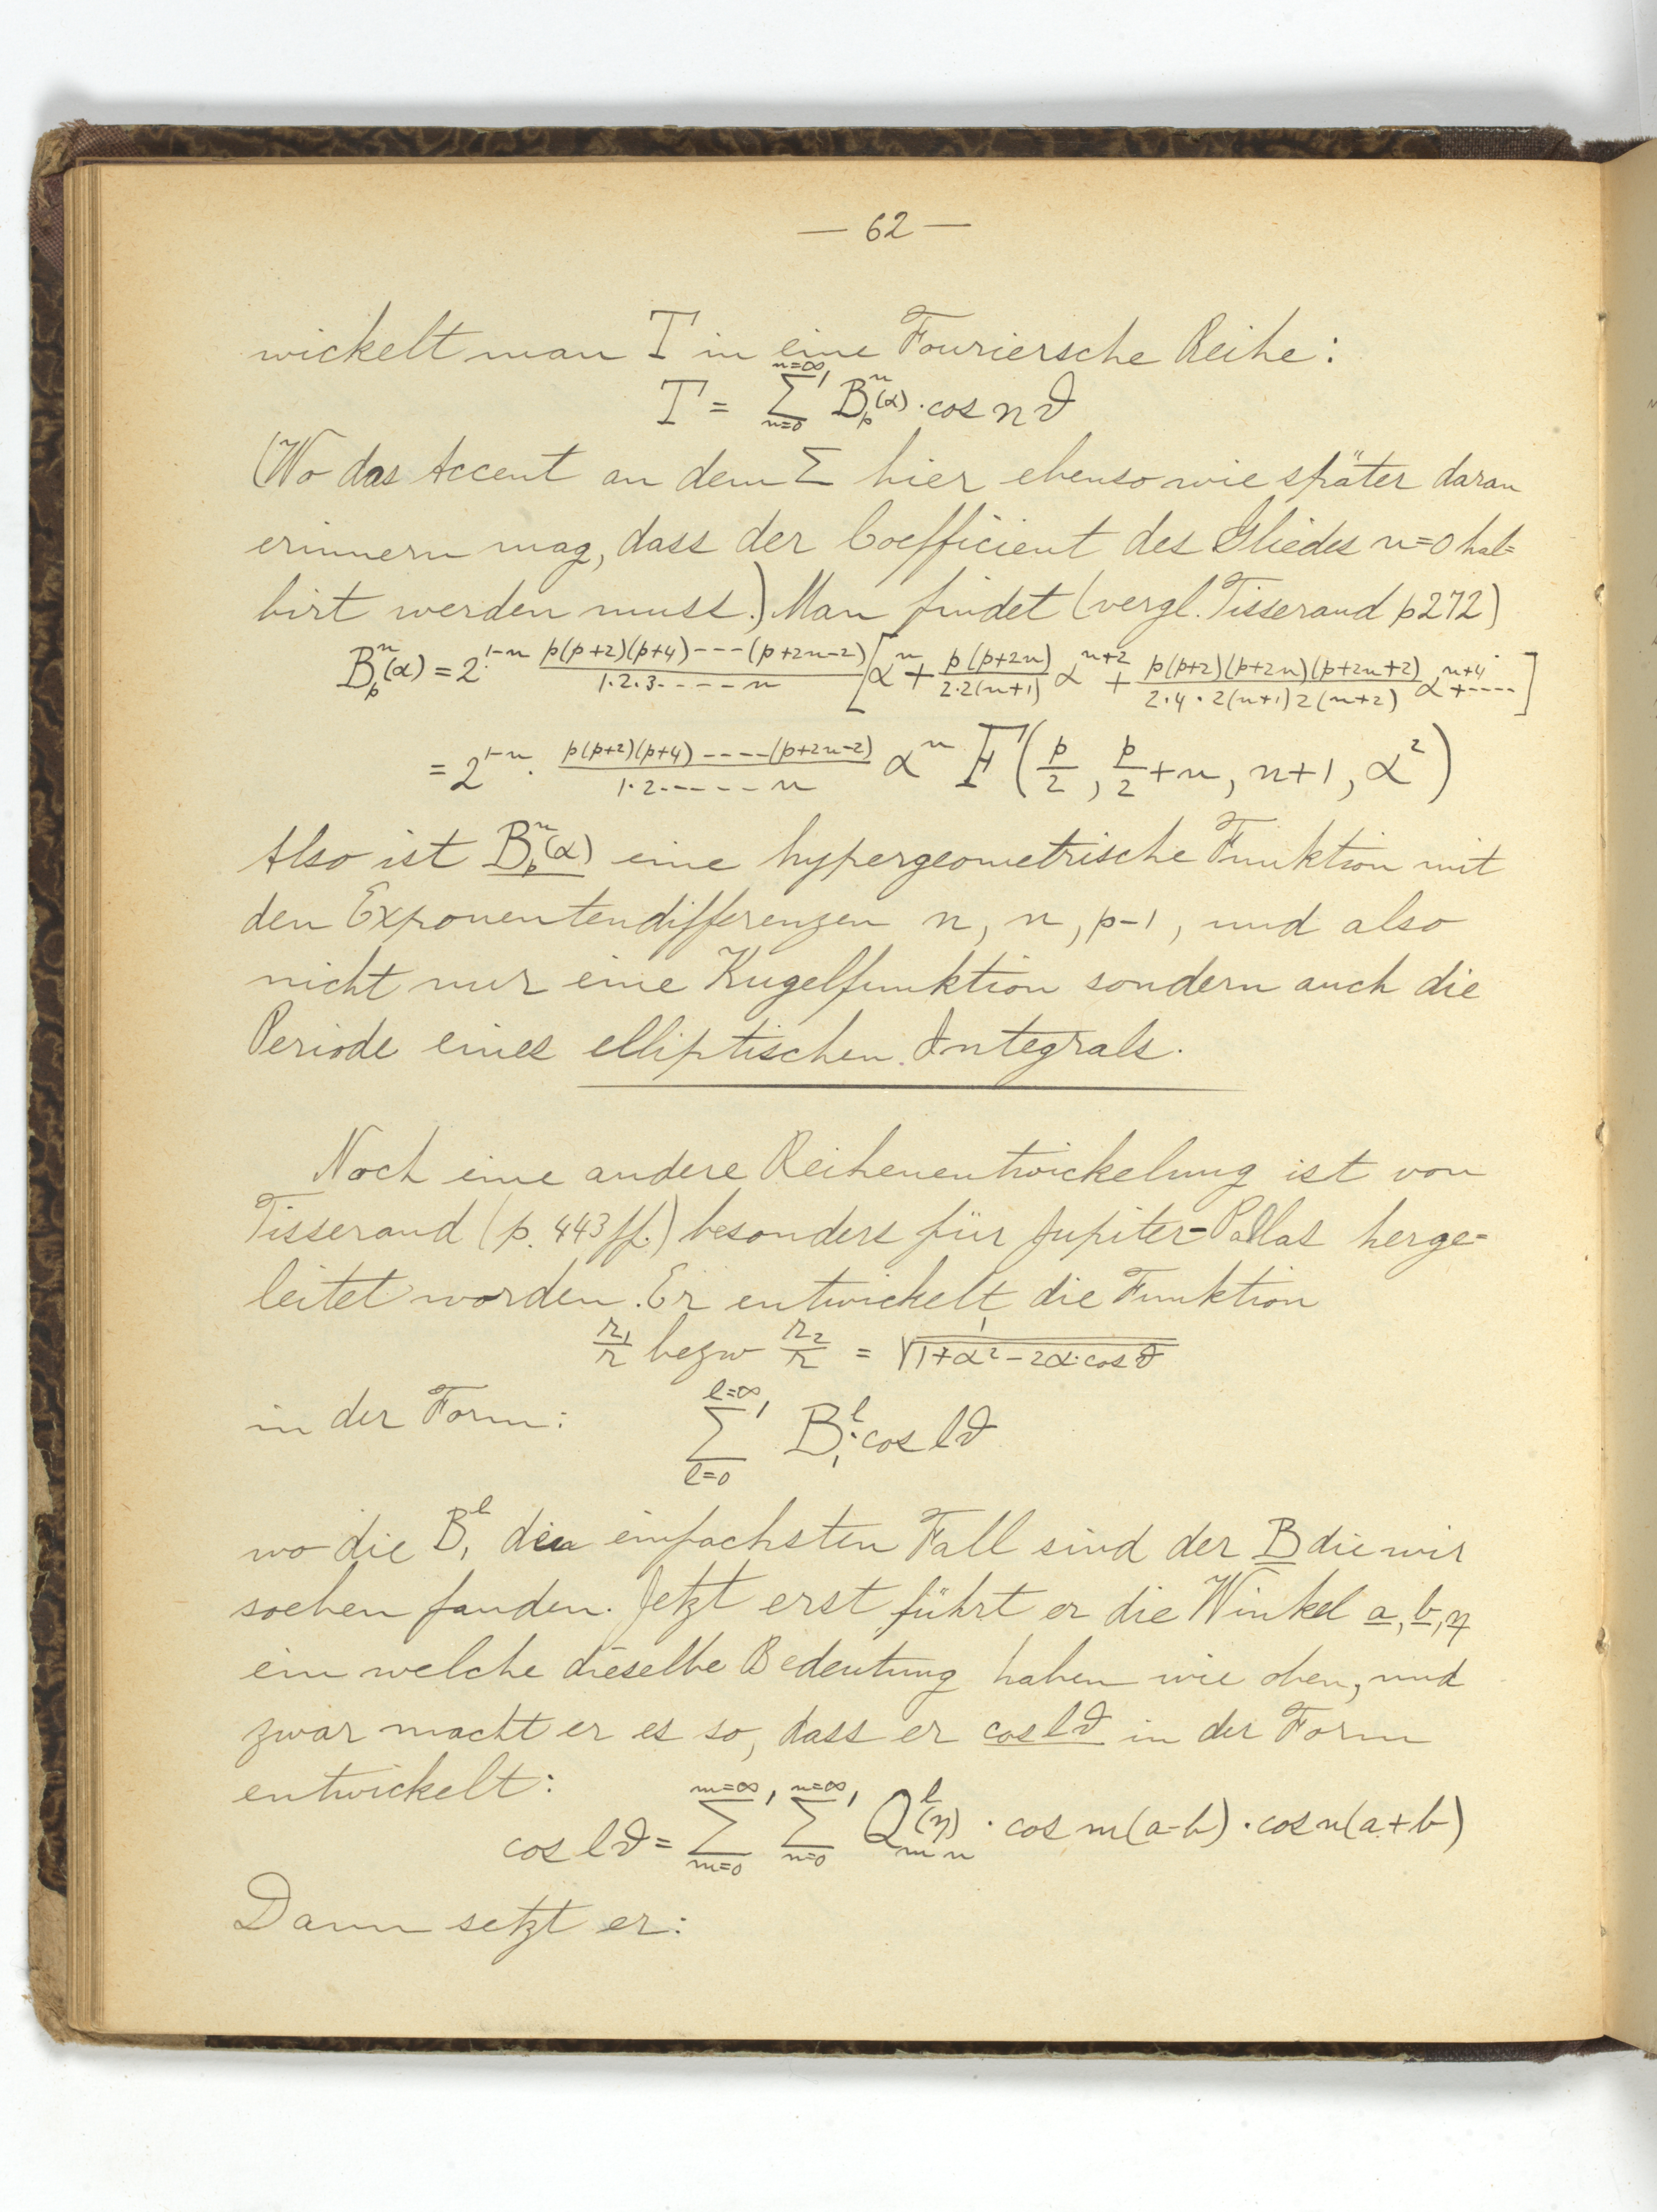 — 62 —
wickelt man T in eine Fouriersche Reihe:
T = \sum_{n=0}^{n=∞}' B_p^n(α) · cos nϑ
(Wo das Accent an dem Σ hier ebenso wie später daran
erinnern mag, dass der Coefficient des Gliedes n=0 hal=
birt werden muss.) Man findet (vergl. Tisserand p 272)
B_p^n(α) = 2^{1-n} · \frac{p(p+2)(p+4)---(p+2n-2)}{1·2·3·----n} [α^n + \frac{p(p+2n)}{2·2(n+1)} α^{n+2} + \frac{p(p+2)(p+2n)(p+2n+2)}{2·4·2(n+1)2(n+2)} α^{n+4} + ----]
= 2^{1-n} · \frac{p(p+2)(p+4)----(p+2n-2)}{1·2·----n} α^n F(\frac{p}{2}, \frac{p}{2}+n, n+1, α^2)
Also ist B_p^n(α) eine hypergeometrische Funktion mit
den Exponentendifferenzen n, n, p-1, und also
nicht nur eine Kugelfunktion sondern auch die
Periode eines elliptischen Integrals.
Noch eine andere Reihenentwickelung ist von
Tisserand (p. 443 ff.) besonders für Jupiter=Pallas herge=
leitet worden. Er entwickelt die Funktion
\frac{r_1}{r} bezw \frac{r_2}{r} = \frac{1}{\sqrt{1+α^2-2α·cos ϑ}}
in der Form: \sum_{l=0}^{l=∞}' B_1^l · cos lϑ
wo die B_1^l den einfachsten Fall sind der B die wir
soeben fanden. Jetzt erst führt er die Winkel a, b, η
ein welche dieselbe Bedeutung haben wie oben, und
zwar macht er es so, dass er cos lϑ in der Form
entwickelt:
cos lϑ = \sum_{m=0}^{m=∞}' \sum_{n=0}^{n=∞}' Q_{m n}^l(η) · cos m(a-b) · cos n(a+b)
Dann setzt er: